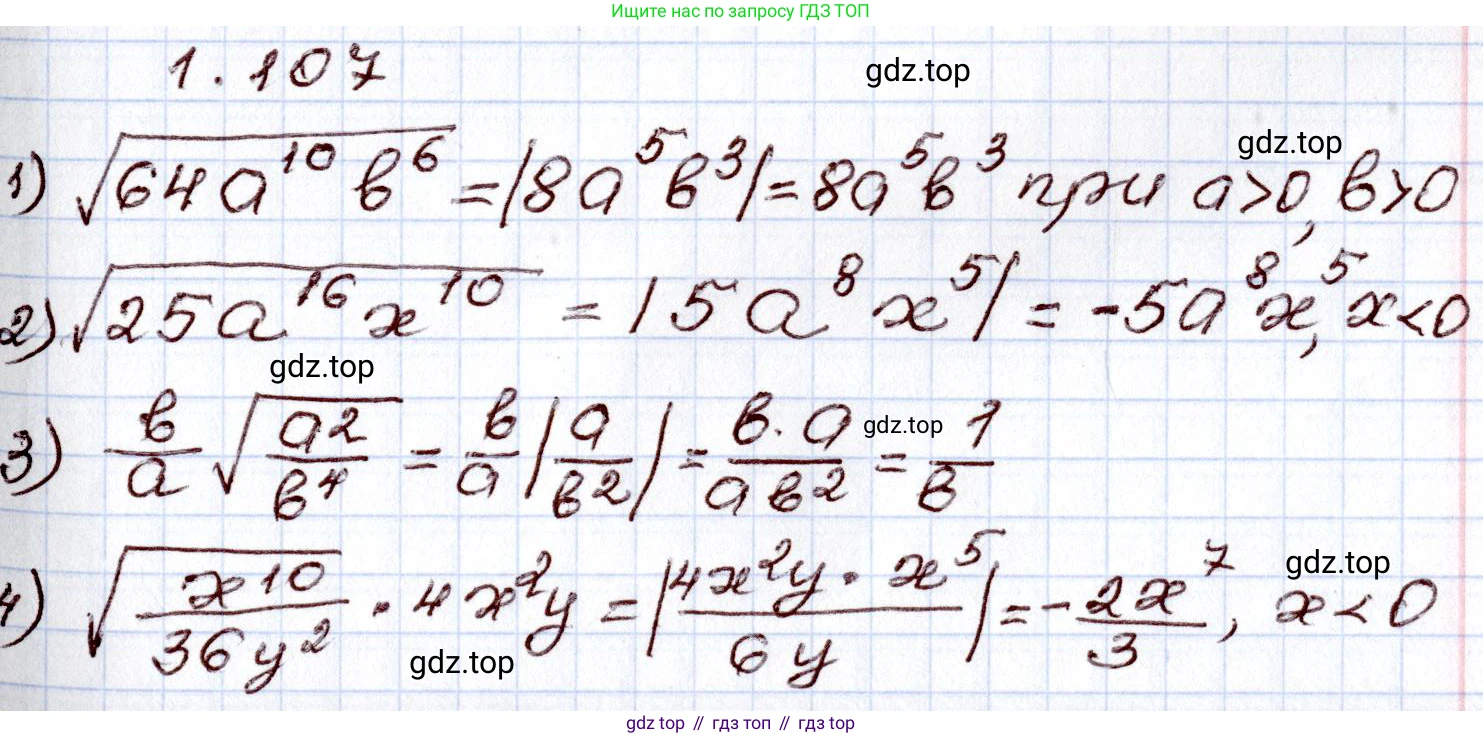 Ищите нас по запросу ГДЗ ТОП
1.107
gdz.top
gdz.top
1) √(64a¹⁰b⁶) = |8a⁵b³| = 8a⁵b³ при a>0, b>0
2) √(25a¹⁶x¹⁰) = |5a⁸x⁵| = -5a⁸x⁵, x<0
gdz.top
3) b/a √(a²/b⁴) = b/a |a/b²| = b·a/ab² = 1/b
gdz.top
4) √(x¹⁰/36y²) · 4x²y = |4x²y · x⁵/6y| = -2x⁷/3, x<0
gdz.top
gdz.top
gdz.top // гдз топ // гдз top